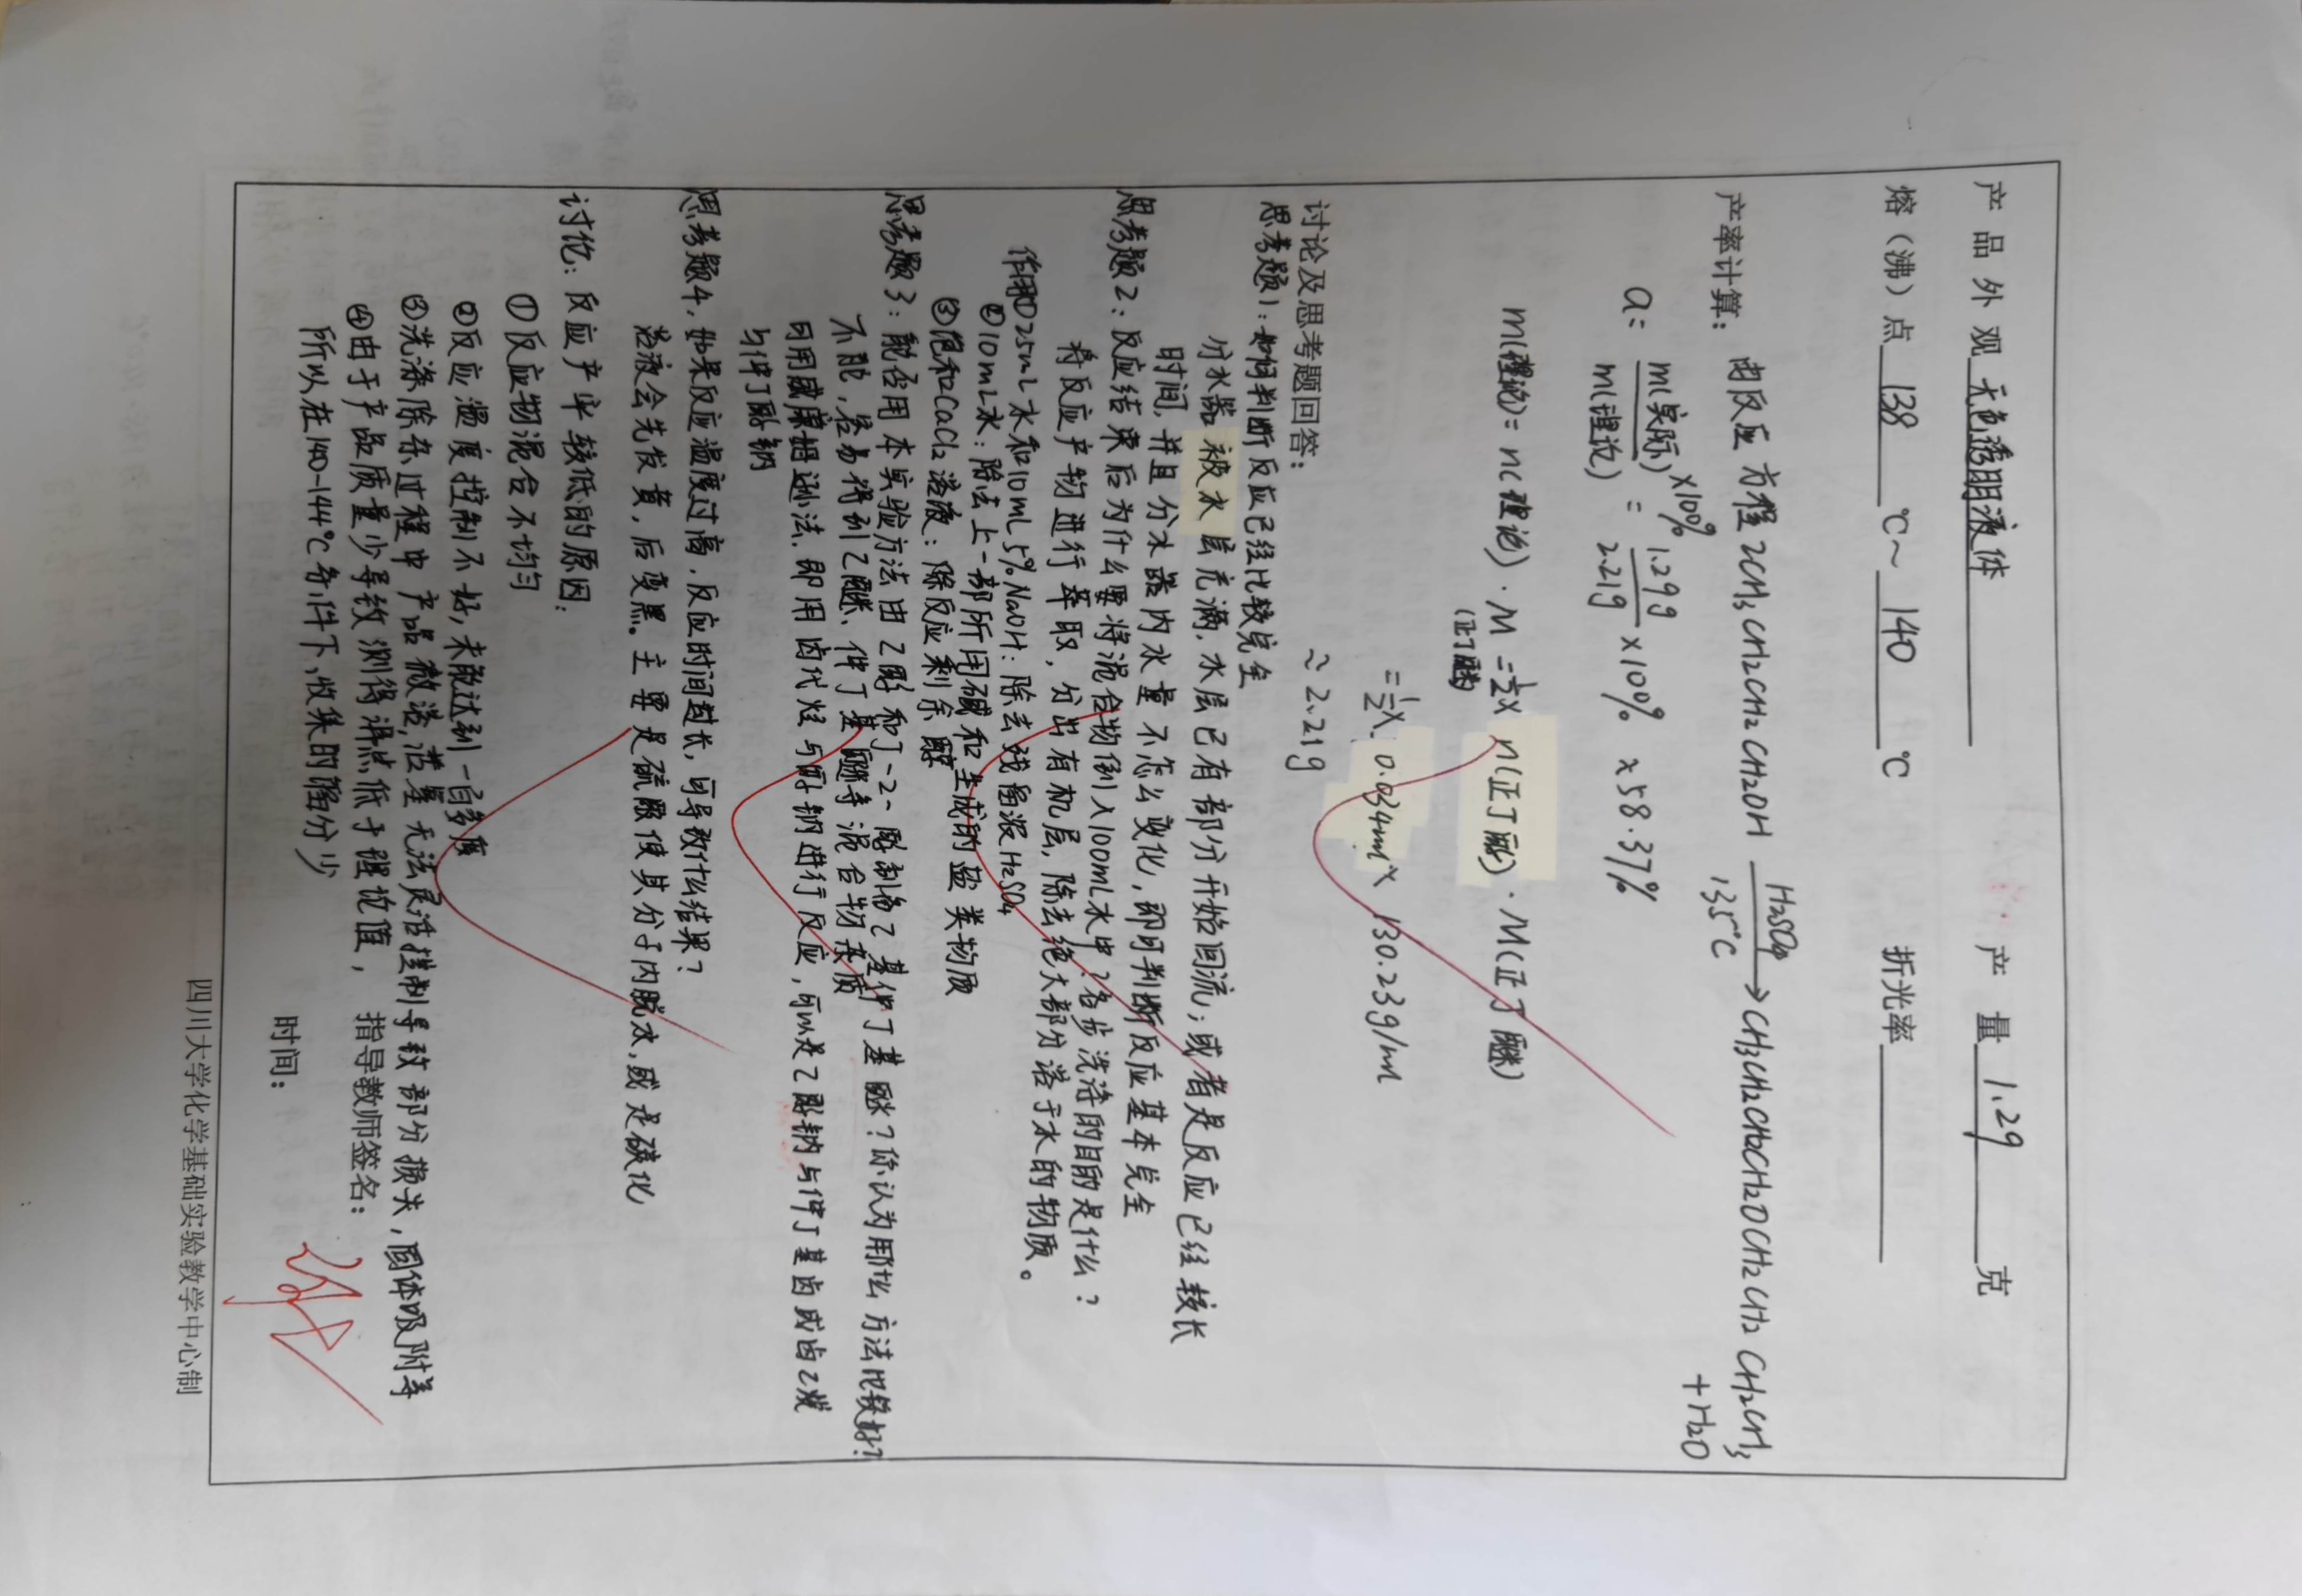 产品外观 无色透明液体 产量 1.29 克
熔(沸)点 138 ℃~ 140 ℃ 折光率
产率计算: 由反应方程 2CH₃CH₂CH₂CH₂CH₂OH H₂SO₄ 135℃ → CH₃CH₂CH₂CH₂CH₂OCH₂CH₂CH₂CH₂CH₃
+H₂O
a= m(实际)/m(理论) ×100% = 1.29g/2.21g ×100% ×58.37%
m(理论)= n(理论)·M(正丁醚) =½× n(正丁醇)·M(正丁醚)
=½× 0.034m× 130.23g/m
≈2.21g
讨论及思考题回答:
思考题1:如何判断反应已经比较完全
分水器被水层充满,水层已有部分开始回流;或者是反应已经较长
时间,并且分水器内水量不怎么变化,即可判断反应基本完全
思考题2:反应结束后为什么要将混合物倒入100mL水中?各步洗涤的目的是什么?
将反应产物进行萃取,分出有机层,除去绝大部分溶于水的物质。
作用①25mL水和10mL5%NaOH:除去残留浓H₂SO₄
②10mL水:除去上一部所用碱和生成的盐类物质
③饱和CaCl₂溶液:除反应剩余醇
思考题3:能否用本实验方法由乙醇和丁-2-醇制备乙基仲丁基醚?你认为用什么方法比较好?
不能,容易得到乙醚、仲丁基醚等混合物杂质
可用威廉姆逊法,即用卤代烃与醇钠进行反应,可以是乙醇钠与仲丁基卤或卤乙烷
与仲丁醇钠
思考题4,如果反应温度过高,反应时间过长,可导致什么结果?
溶液会先发黄,后变黑。主要是硫酸使其分子内脱水,或是碳化
讨论:反应产率较低的原因:
①反应物混合不均匀
②反应温度控制不好,未能达到一百多度
③洗涤除杂过程中产品微溶,活塞无法灵活控制导致部分损失,固体吸附等
④由于产品质量少导致测得沸点低于理论值,
所以在140~144℃条件下,收集的馏分少
指导教师签名:
时间:
四川大学化学基础实验教学中心制